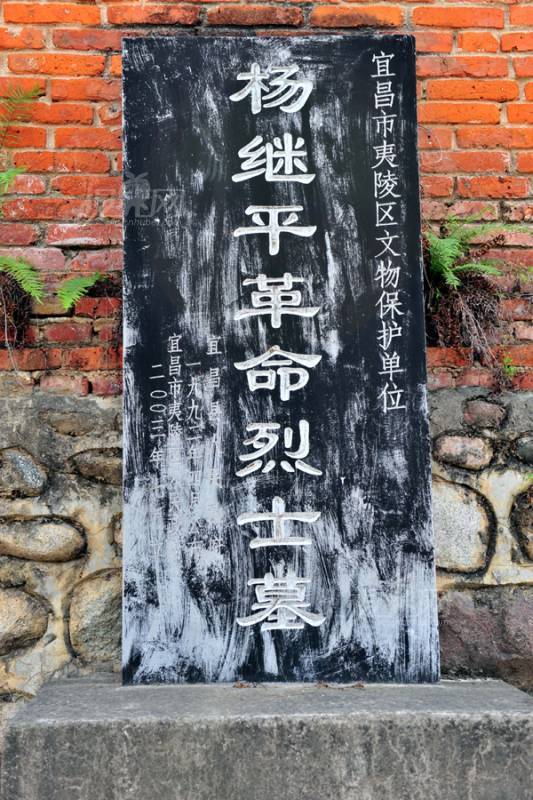 宜昌市夷陵区文物保护单位
杨继平革命烈士墓
宜昌县
一九九二年
宜昌市夷陵
二〇〇二年